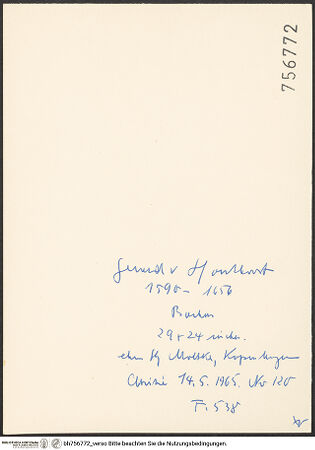 756772
Gerard v Honthorst
1590 - 1656
Bacchus
29 x 24 inches.
ehem Slg Moltke, Kopenhagen
Christie 14.5.1965. Nr 120
F. 538
bh756772_verso Bitte beachten Sie die Nutzungsbedingungen.